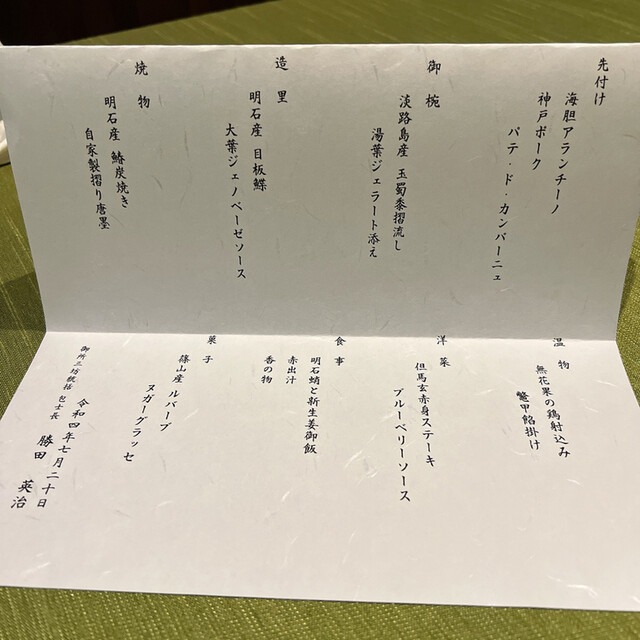 先付け
海胆アランチーノ
神戸ポーク
パテ・ド・カンパーニュ
御椀
淡路島産 玉蜀黍摺流し
湯葉ジェラート添え
造里
明石産 目板鰈
大葉ジェノベーゼソース
焼物
明石産 鰆炭焼き
自家製摺り唐墨
温物
無花果の鶏射込み
鼈甲餡掛け
洋菜
但馬玄赤身ステーキ
ブルーベリーソース
食事
明石蛸と新生姜御飯
赤出汁
香の物
菓子
篠山産 ルバーブ
ヌガーグラッセ
令和四年七月二十日
御所三坊総括 包士長 勝田 英治